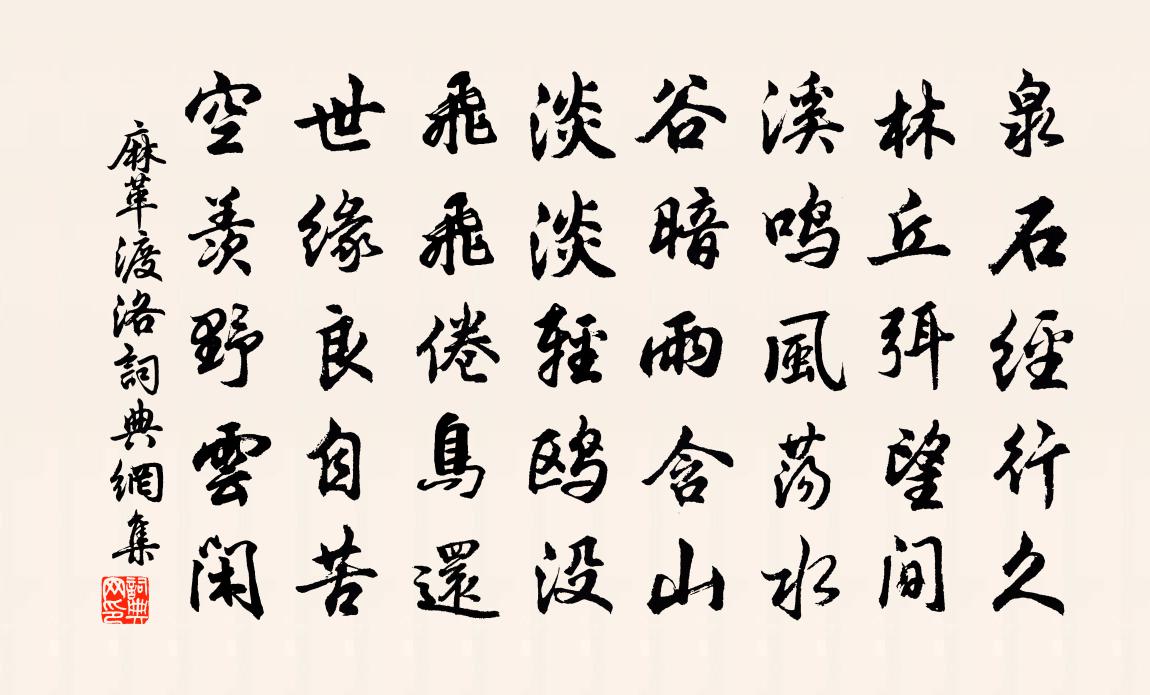 泉石經行久
林丘弭望间
溪鳴風蕩水
谷暗雨含山
淡淡輕鸥没
飛飛倦鳥還
世緣良自苦
空羨野雲闲
麻革渡洛詞典網集
詞典網印